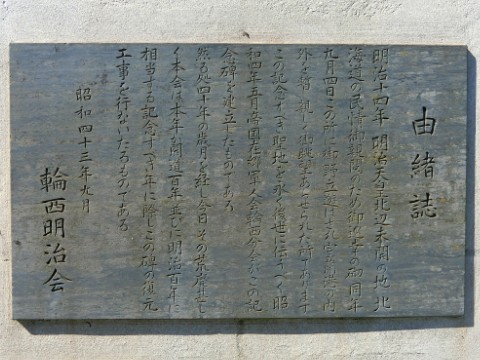 由緒誌
明治十四年 明治天皇北辺未開の地北
海道の民情御視閲のため御巡幸の砌同年
九月四日この
外を
この記念すべき聖地を永く後世に伝すべく昭
和四年五月帝国在郷軍人会輪西分会がこの記
念碑を建立したものである
然る処四十年の歳月を経し今日その荒廃甚し
く本会は本年が開道百年並びに明治百年に
相当する記念すべき年に際しこの碑の復元
工事を行ないたるものである
昭和四十三年九月
輪西明治会